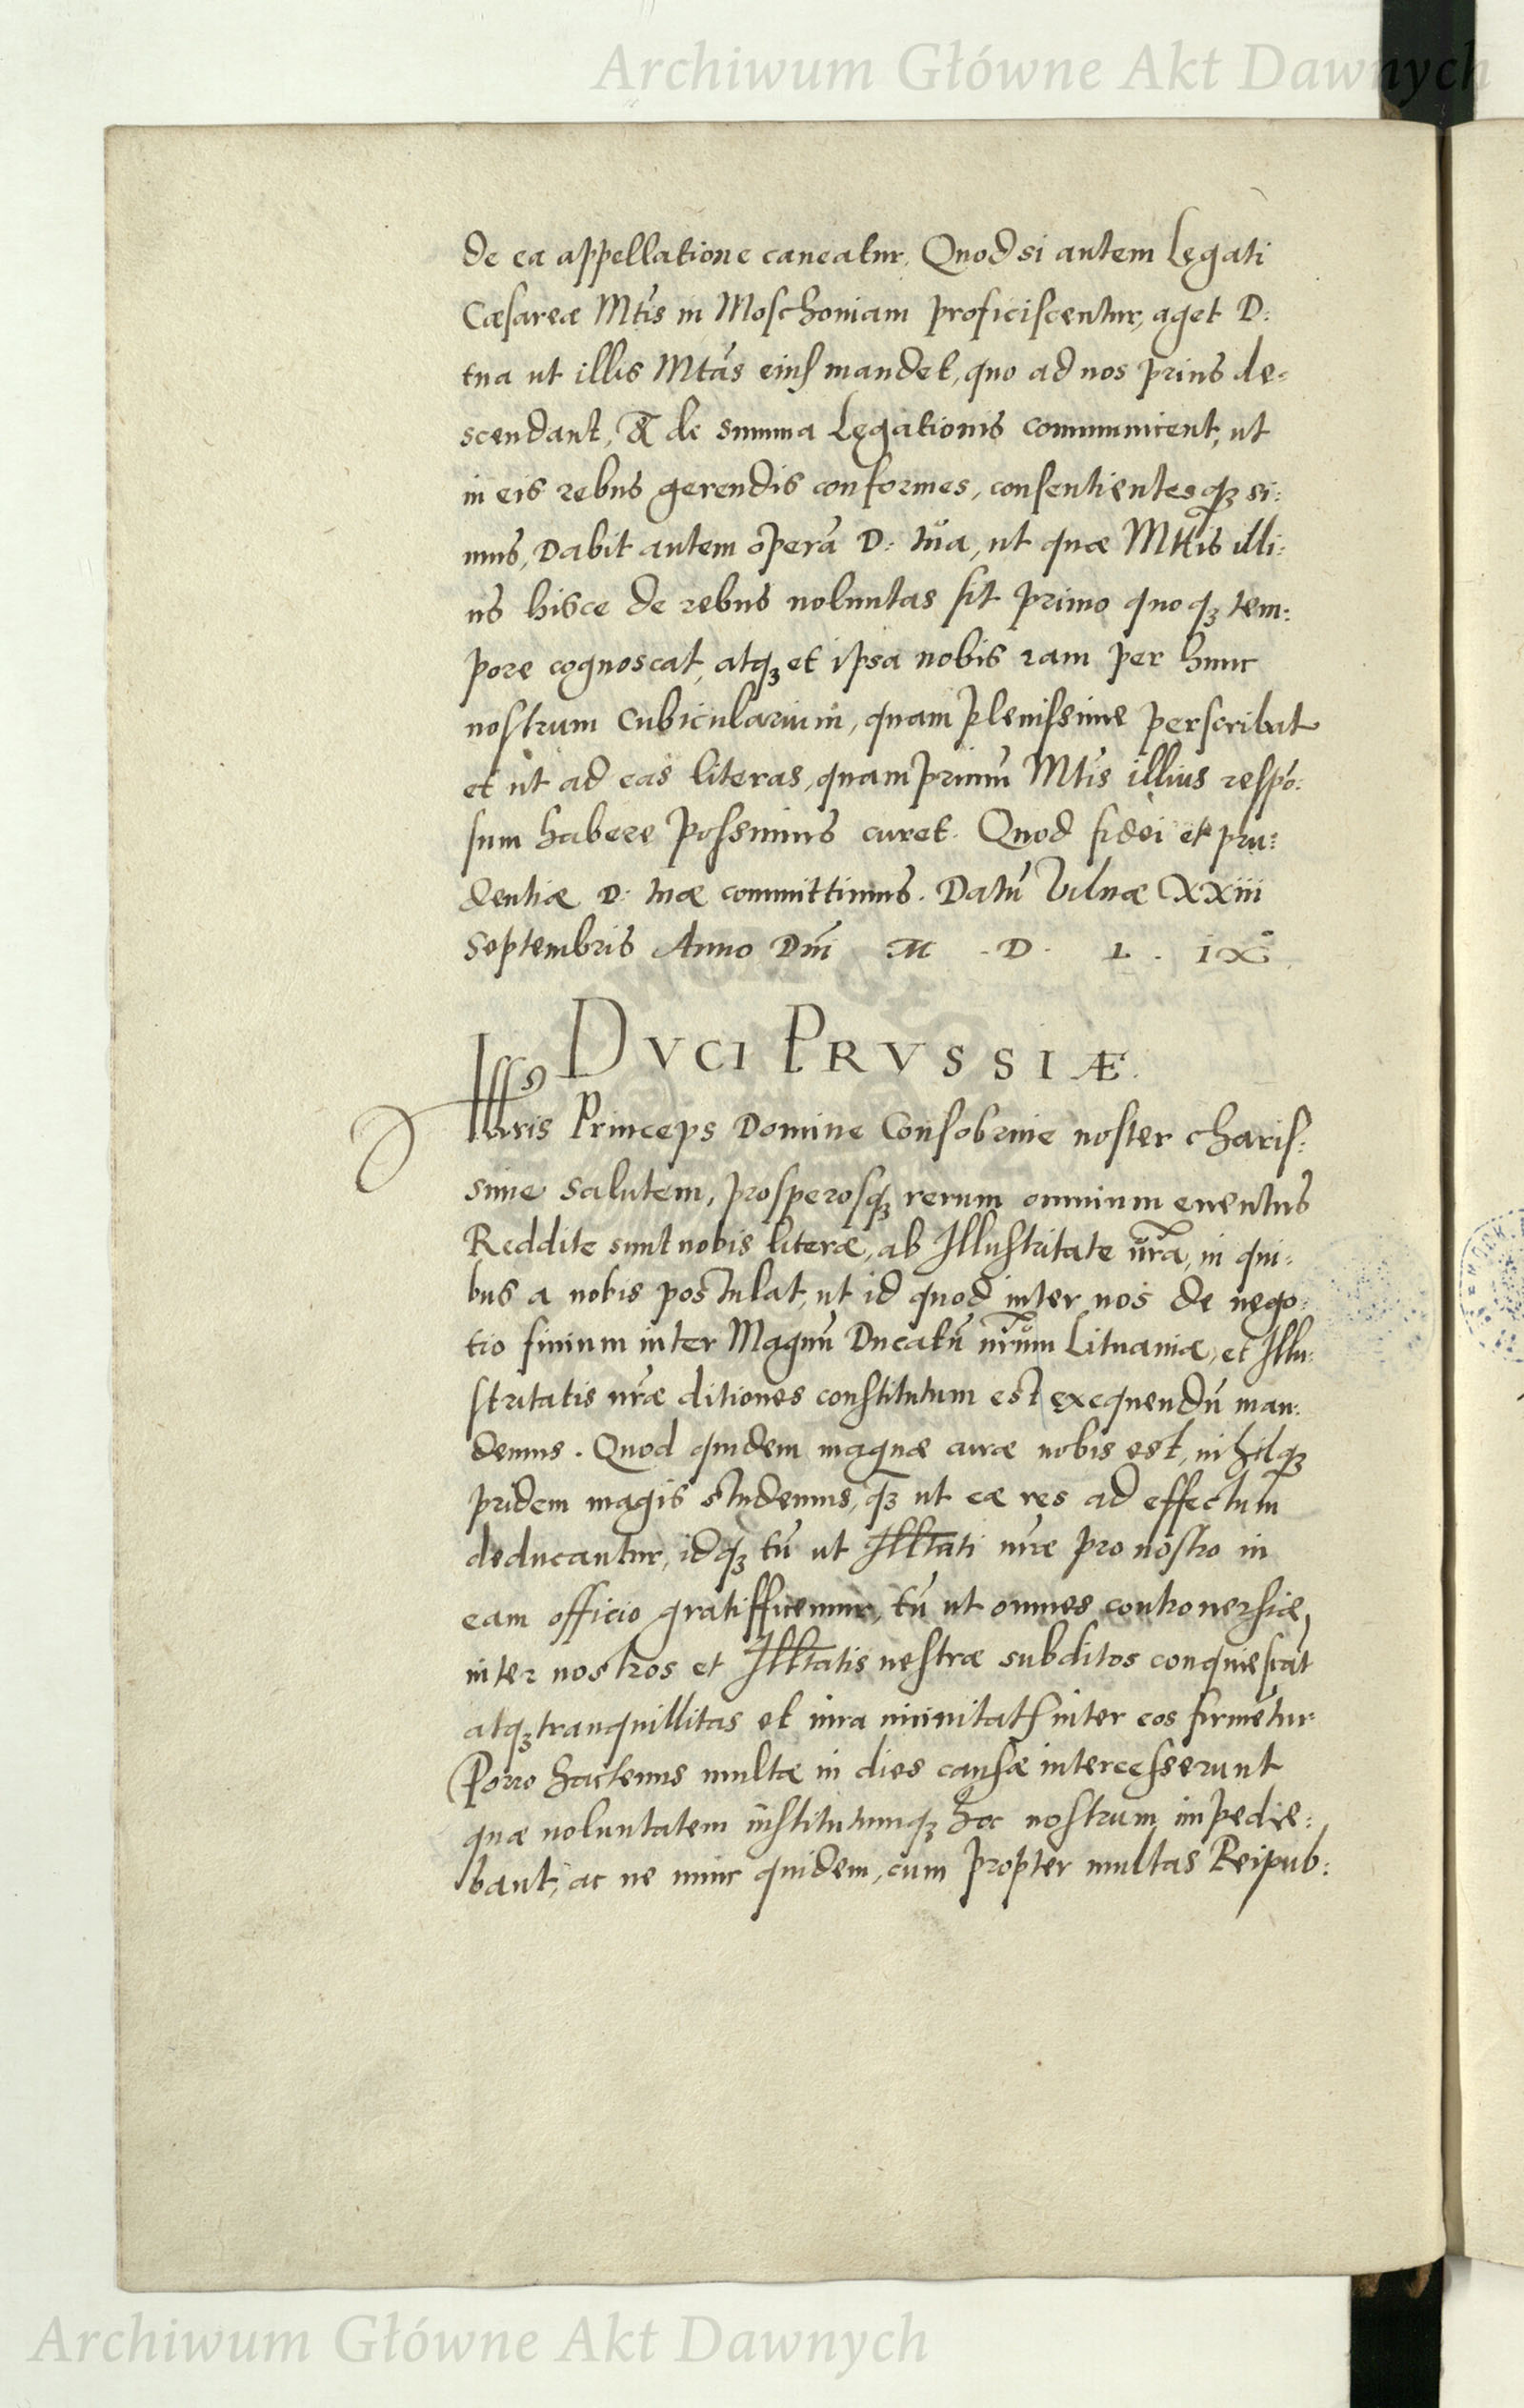 Archiwum Główne Akt Dawnych
de ea appellatione caueatur. Quod si autem Legati
Cæsareæ Mtis in Moschouiam proficiscentur, aget D:
tua ut illis Mtas eius mandet, quo ad nos prius de=
scendant, & de summa Legationis communicent, ut
in eis rebus gerendis conformes, consentientesqȝ si:
mus, Dabit autem operã D: tua, ut quæ Mttis illi:
us hisce de rebus uoluntas sit primo quoqȝ tem:
pore cognoscat, atqȝ et ipsa nobis eam per hunc
nostrum cubicularium, quam plenissime perscribat
et ut ad eas literas, quamprimũ Mtis illius respõ:
sum habere possimus curet. Quod fidei et pru:
dentiæ D: tuæ committimus. Datũ Vilnæ XXiii
Septembris Anno Dñi M · D · L · iX°.
DVCI PRVSSIÆ.
Illris Princeps Domine Consobrine noster charis:
sime salutem, prosperosqȝ rerum omnium euentus
Reddite sunt nobis literæ, ab Illustritate ura, in qui:
bus a nobis postulat, ut id quod inter nos de nego:
tio finium inter Magnũ Ducatũ nrum Lituaniæ, et Illu:
stritatis uræ ditiones constitutum est exequendũ man:
demus. Quod quidem magnæ curæ nobis est, nihilqȝ
pridem magis studemus, qȝ ut eæ res ad effectum
deducantur, idqȝ tũ ut Illtati uræ pro nostro in
eam officio gratifficemur, tũ ut omnes controuersiæ
inter nostros et Illtatis uestræ subditos conquiescãt
atqȝ tranquillitas et iura uicinitatis inter eos firmẽtur
Porro hactenus multæ in dies causæ intercesserunt
quæ uoluntatem institutumqȝ hoc nostrum impedie:
bant, ac ne nunc quidem, cum propter multas Reipub:
Archiwum Główne Akt Dawnych